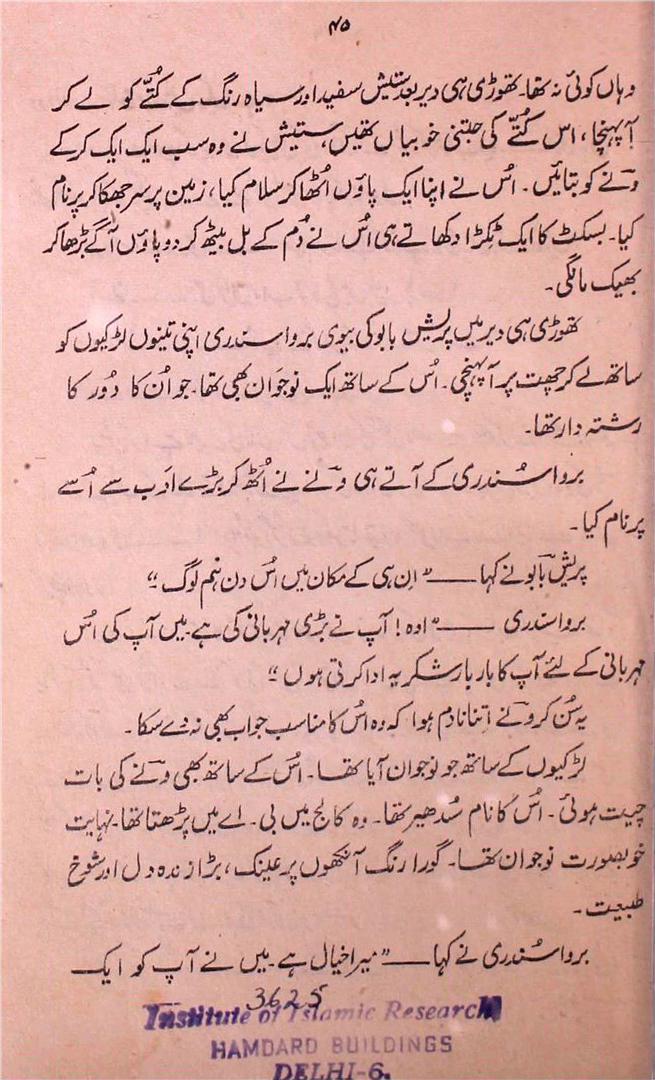 ۴۵
وہاں کوئی نہ تھا۔ تھوڑی ہی دیر بعد ستیش سفید اور سیاہ رنگ کے کُتّے کو لے کر
آ پہنچا، اس کُتّے کی جتنی خوبیاں تھیں، ستیش نے وہ سب ایک ایک کر کے
ونے کو بتائیں۔ اُس نے اپنا ایک پاؤں اُٹھا کر سلام کیا، زمین پر سر جھکا کر پرنام
کیا۔ بسکٹ کا ایک ٹکڑا دکھاتے ہی اُس نے دُم کے بل بیٹھ کر دو پاؤں آگے بڑھا کر
بھیک مانگی۔
تھوڑی ہی دیر میں پریش بابو کی بیوی بروا سندری اپنی تینوں لڑکیوں کو
ساتھ لے کر چھت پر آ پہنچی۔ اُس کے ساتھ ایک نوجوان بھی تھا۔ جو اُن کا دُور کا
رشتہ دار تھا۔
بروا سُندری کے آتے ہی ونے نے اُٹھ کر بڑے ادَب سے اُسے
پرنام کیا۔
پریش بابو نے کہا ــــــ ”اِن ہی کے مکان میں اُس دن ہم لوگ“
بروا سندری ــــــ ”اوہ! آپ نے بڑی مہربانی کی ہے۔ میں آپ کی اُس
مہربانی کے لئے آپ کا بار بار شکریہ ادا کرتی ہوں“
یہ سُن کر ونے اِتنا نادم ہوا کہ وہ اُس کا مناسب جواب بھی نہ دے سکا۔
لڑکیوں کے ساتھ جو نوجوان آیا تھا۔ اُس کے ساتھ بھی ونے کی بات
چیت ہوئی۔ اُس کا نام سُدھیر تھا۔ وہ کالج میں بی۔ اے میں پڑھتا تھا۔ نہایت
خوبصورت نوجوان تھا۔ گورا رنگ آنکھوں پر عینک، بڑا زندہ دل اور شوخ
طبیعت۔
بروا سُندری نے کہا ــــــ ”میرا خیال ہے۔ میں نے آپ کو ایک
3625
Institute of Islamic Research
HAMDARD BUILDINGS
DELHI-6.